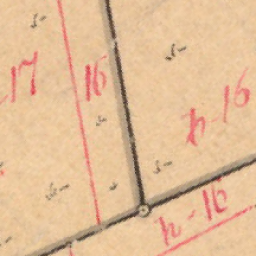 -17
16
h-16
h-16